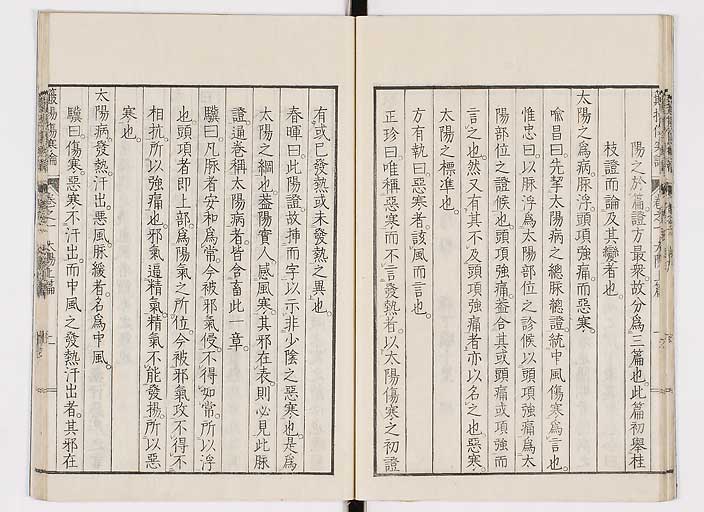 陽之於篇證方最衆故分爲三篇也。此篇初擧桂
枝證而論及其變者也。
太陽之爲病。脉浮。頭項強痛而惡寒。
喩昌曰。先挈太陽病之總脉總證。統中風傷寒爲言也。
惟忠曰。以脉浮爲太陽部位之診候。以頭項強痛爲太
陽部位之證候也。頭項強痛。蓋合其或頭痛或項強而
言之也。然又有其不及頭項強痛者。亦以名之也。惡寒。
太陽之標準也。
方有執曰。惡寒者。該風而言也。
正珍曰。唯稱惡寒而不言發熱者。以太陽傷寒之初。證
有或已發熱或未發熱之異也。
春暉曰。此陽證。故揷而字以示非少陰之惡寒也。是爲
太陽之綱也。蓋陽實人感風寒。其邪在表。則必見此脉
證。通卷稱太陽病者。皆含畜此一章。
驥曰。凡脉者安和爲常。今被邪氣侵。不得如常。所以浮
也。頭項者卽上部。爲陽氣之所位。今被邪氣攻。不得不
相抗。所以強痛也。邪氣逼精氣。精氣不能發揚。所以惡
寒也。
太陽病。發熱。汗出。惡風。脉緩者。名爲中風。
驥曰。傷寒。惡寒不汗出。而中風之發熱汗出者。其邪在